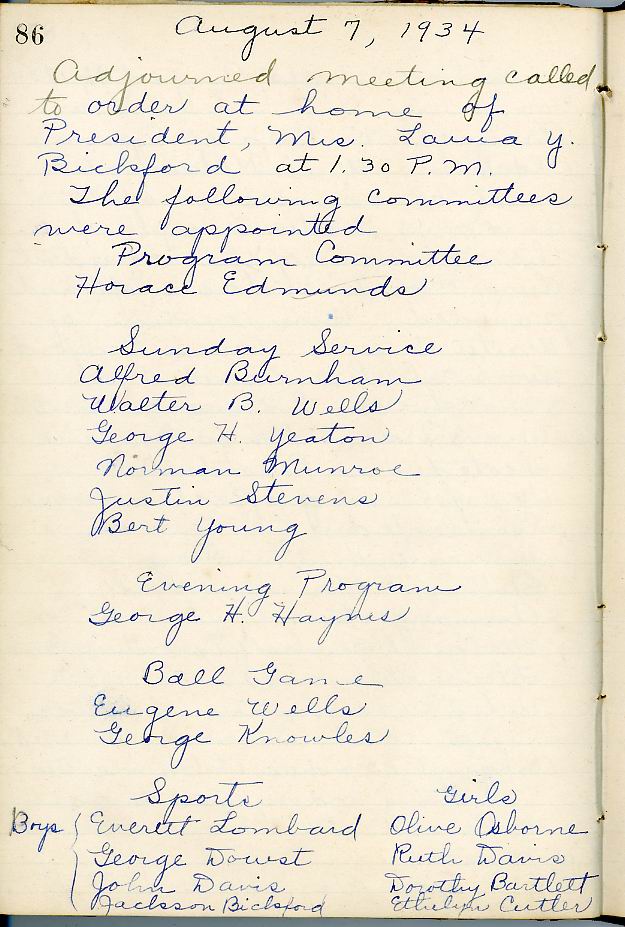 86
August 7, 1934
Adjourned meeting called
to order at home of
President, Mrs. Laura Y.
Bickford at 1.30 P.M.
The following committees
were appointed
Program Committee
Horace Edmunds
Sunday Service
Alfred Burnham
Walter B. Wells
George H. Yeaton
Norman Munroe
Justin Stevens
Bert Young
Evening Program
George H. Haynes
Ball Game
Eugene Wells
George Knowles
Sports Girls
Boys Everett Lombard Olive Osborne
George Dowst Ruth Davis
John Davis Dorothy Bartlett
Jackson Bickford Ethelyn Cutler